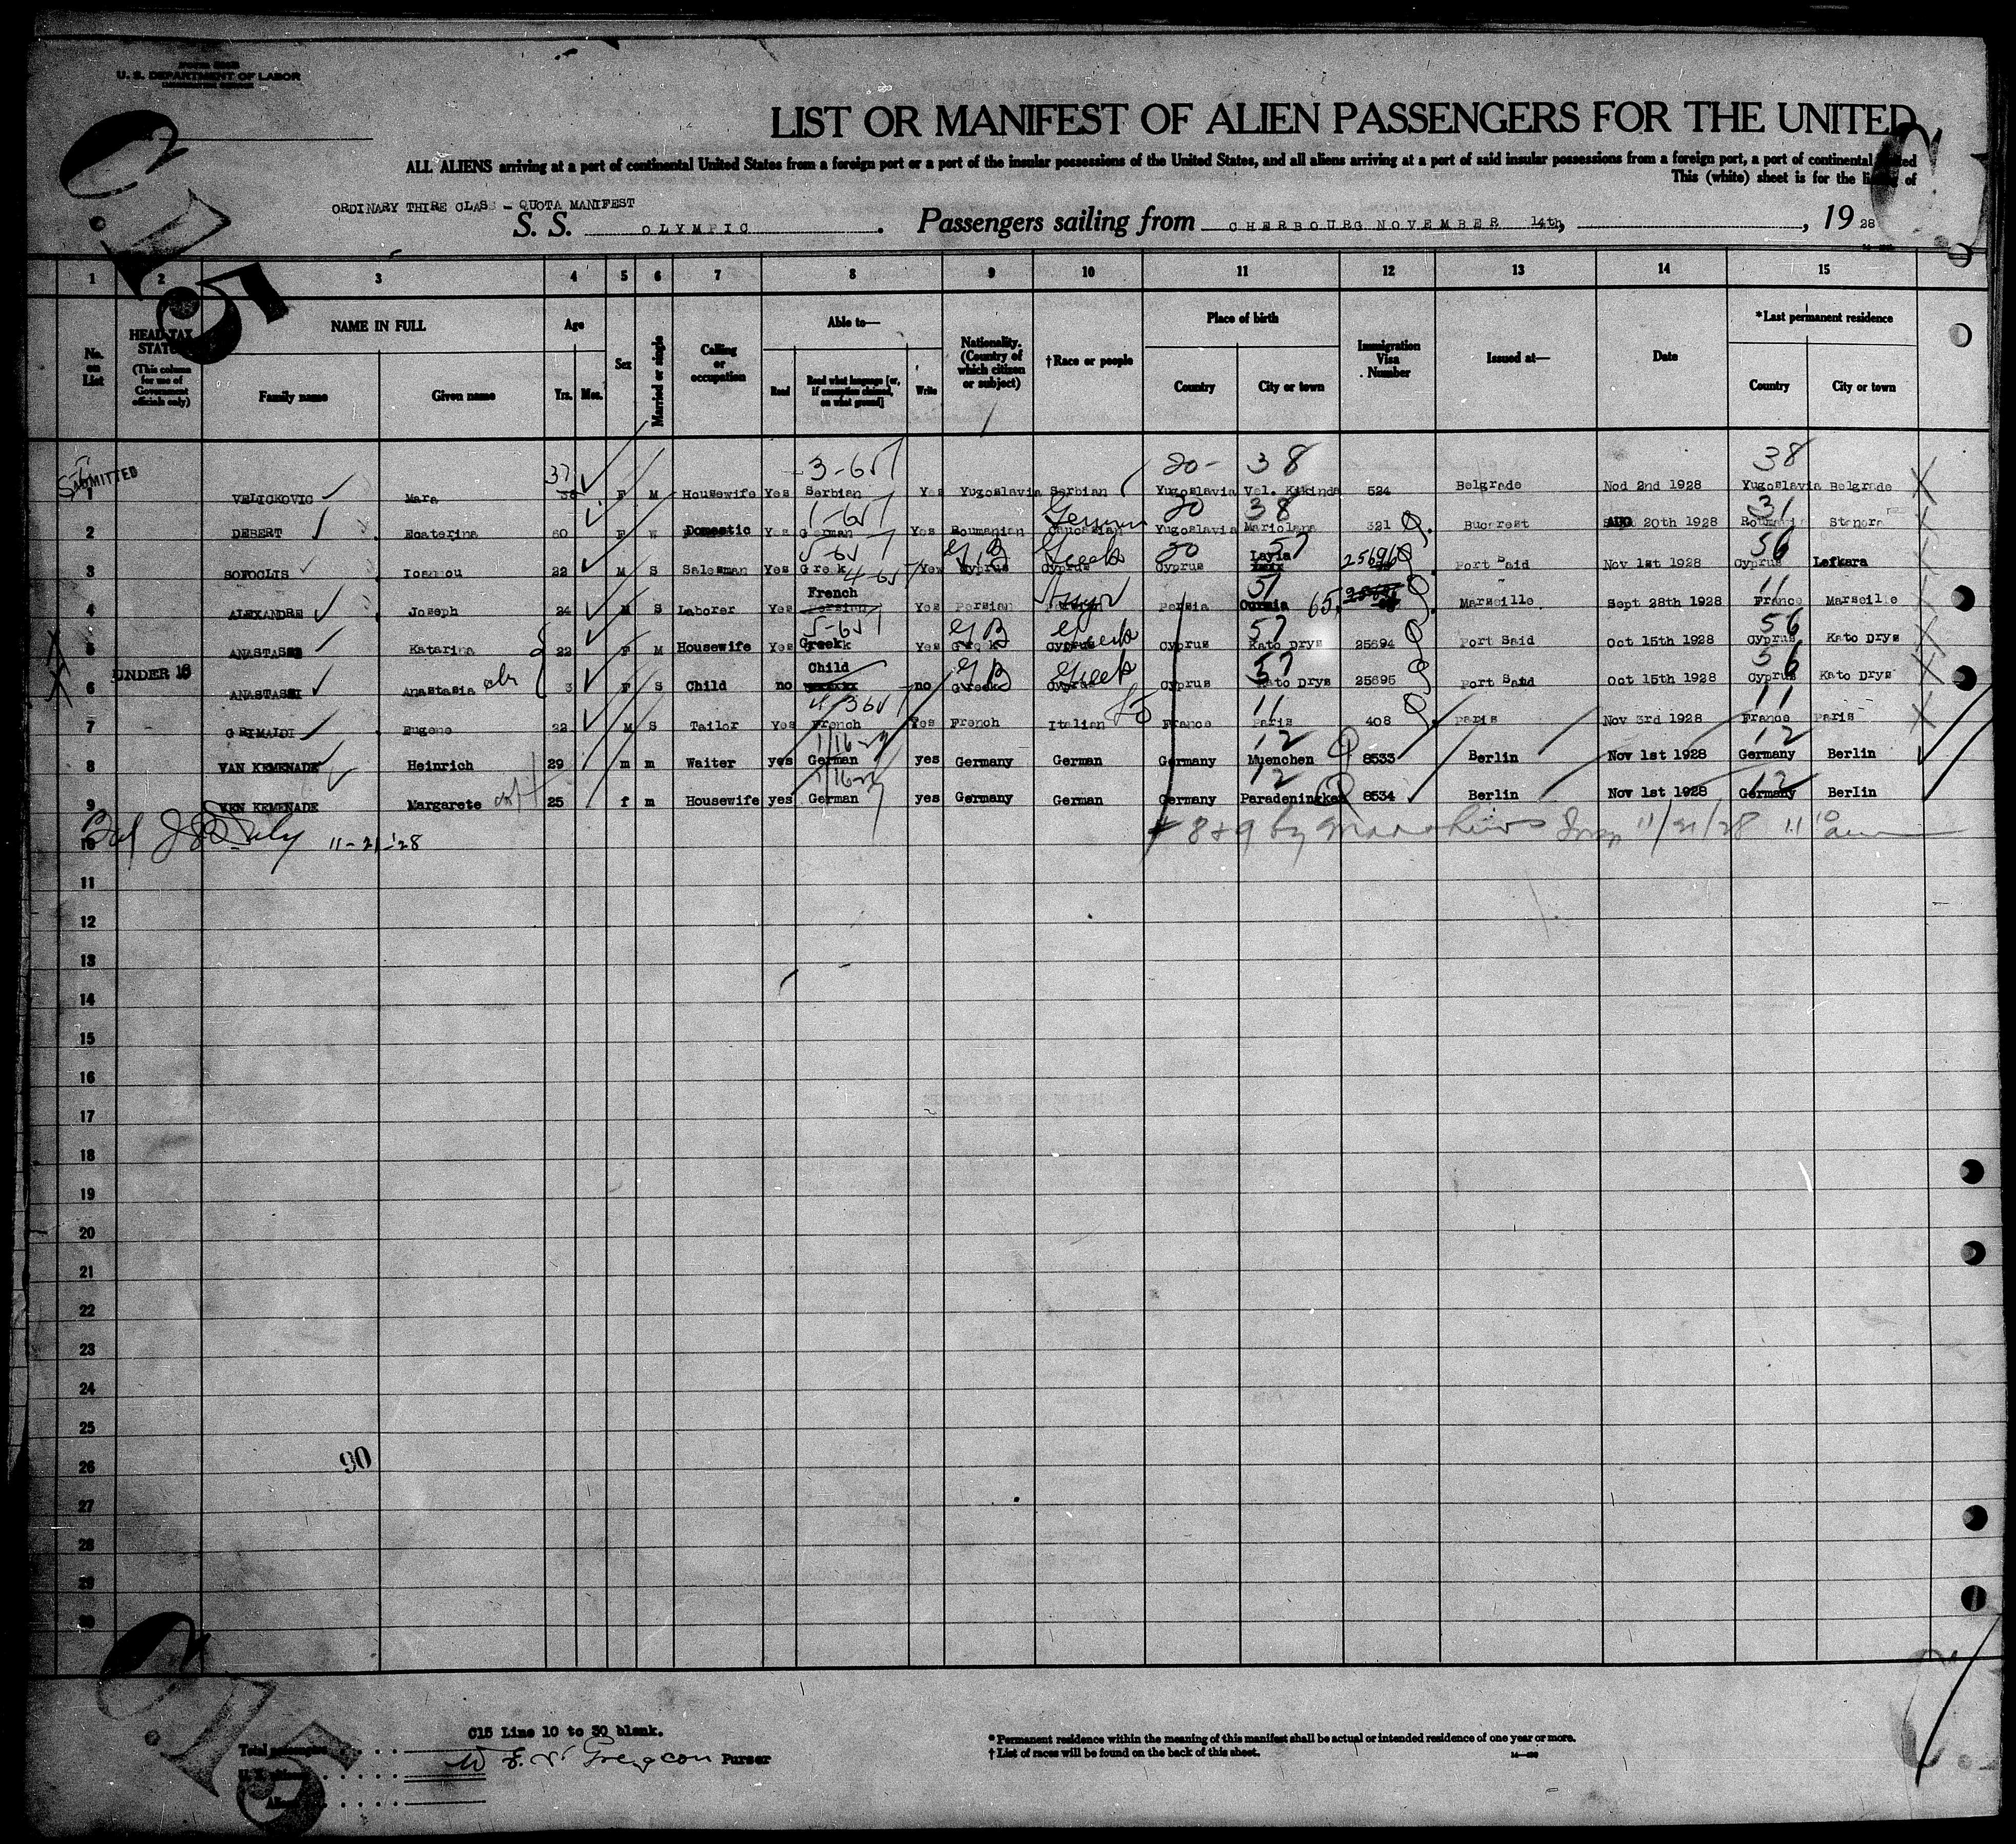 U. S. DEPARTMENT OF LABOR
C.15
LIST OR MANIFEST OF ALIEN PASSENGERS FOR THE UNITED
ALL ALIENS arriving at a port of continental United States from a foreign port or a port of the insular possessions of the United States, and all aliens arriving at a port of said insular possessions from a foreign port, a port of continental United
This (white) sheet is for the listing of
ORDINARY THIRE CLASS - QUOTA MANIFEST
S. S. OLYMPIC. Passengers sailing from CHERBOURG NOVEMBER 14th, , 19 28
1 2 3 4 5 6 7 8 9 10 11 12 13 14 15
No. on List
HEAD-TAX STATUS (This column for use of Government officials only)
NAME IN FULL Family name Given name
Age Yrs. Mos.
Sex
Married or single
Calling or occupation
Able to— Read Read what language [or, if exemption claimed, on what ground] Write
Nationality. (Country of which citizen or subject)
†Race or people
Place of birth Country City or town
Immigration Visa Number
Issued at—
Date
*Last permanent residence Country City or town
ADMITTED
37 3-651 20- 38 38
1 VELICKOVIC Mara 38 F M Housewife Yes Serbian Yes Yugoslavia Serbian Yugoslavia Vel. Kikinda 524 Belgrade Nod 2nd 1928 Yugoslavia Belgrade
1-651 German 20 38 31
2 DEBERT Ecaterina 60 F W Domestic Yes German Yes Roumanian Caucasian Yugoslavia Mariolana 321 Bucarest AUG 20th 1928
5-651 G.B Greek 50 57 56
3 SOFOCLIS Ioannou 22 M S Salesman Yes Greek Yes Cyprus Cyprus Cyprus Layia 25696 Port Said Nov 1st 1928 Cyprus Lefkara
4-651 French 51 11
4 ALEXANDRE Joseph 24 M S Laborer Yes Persian Yes Persian Persia Ourmia 65 Marseille Sept 28th 1928 France Marseille
5-651 G B Greek 57 56
5 ANASTASSI Katarina 22 F M Housewife Yes Greek Yes Greek Cyprus Cyprus Kato Drys 25694 Port Said Oct 15th 1928 Cyprus Kato Drys
UNDER 16 Child G B Greek 57 56
6 ANASTASSI Anastasia 3 F S Child no no Greek Cyprus Cyprus Kato Drys 25695 Port Said Oct 15th 1928 Cyprus Kato Drys
4/3651 85 11 11
7 GRIMALDI Eugene 22 M S Tailor Yes French Yes French Italian France Paris 408 Paris Nov 3rd 1928 France Paris
12 12
8 VAN KEMENADE Heinrich 29 m m Waiter yes German yes Germany German Germany Muenchen 8533 Berlin Nov 1st 1928 Germany Berlin
12 12
9 VEN KEMENADE Margarete 25 f m Housewife yes German yes Germany German Germany Paradeninkken 8534 Berlin Nov 1st 1928 Germany Berlin
8 & 9 by Insp 11/21/28 11 10 am
10 11-21-28
11
12
13
14
15
16
17
18
19
20
21
22
23
24
25
26
90
27
28
29
30
C15 Line 10 to 30 blank.
Total passengers
Purser
U. S. citizens
Aliens
* Permanent residence within the meaning of this manifest shall be actual or intended residence of one year or more.
† List of races will be found on the back of this sheet.
C.15